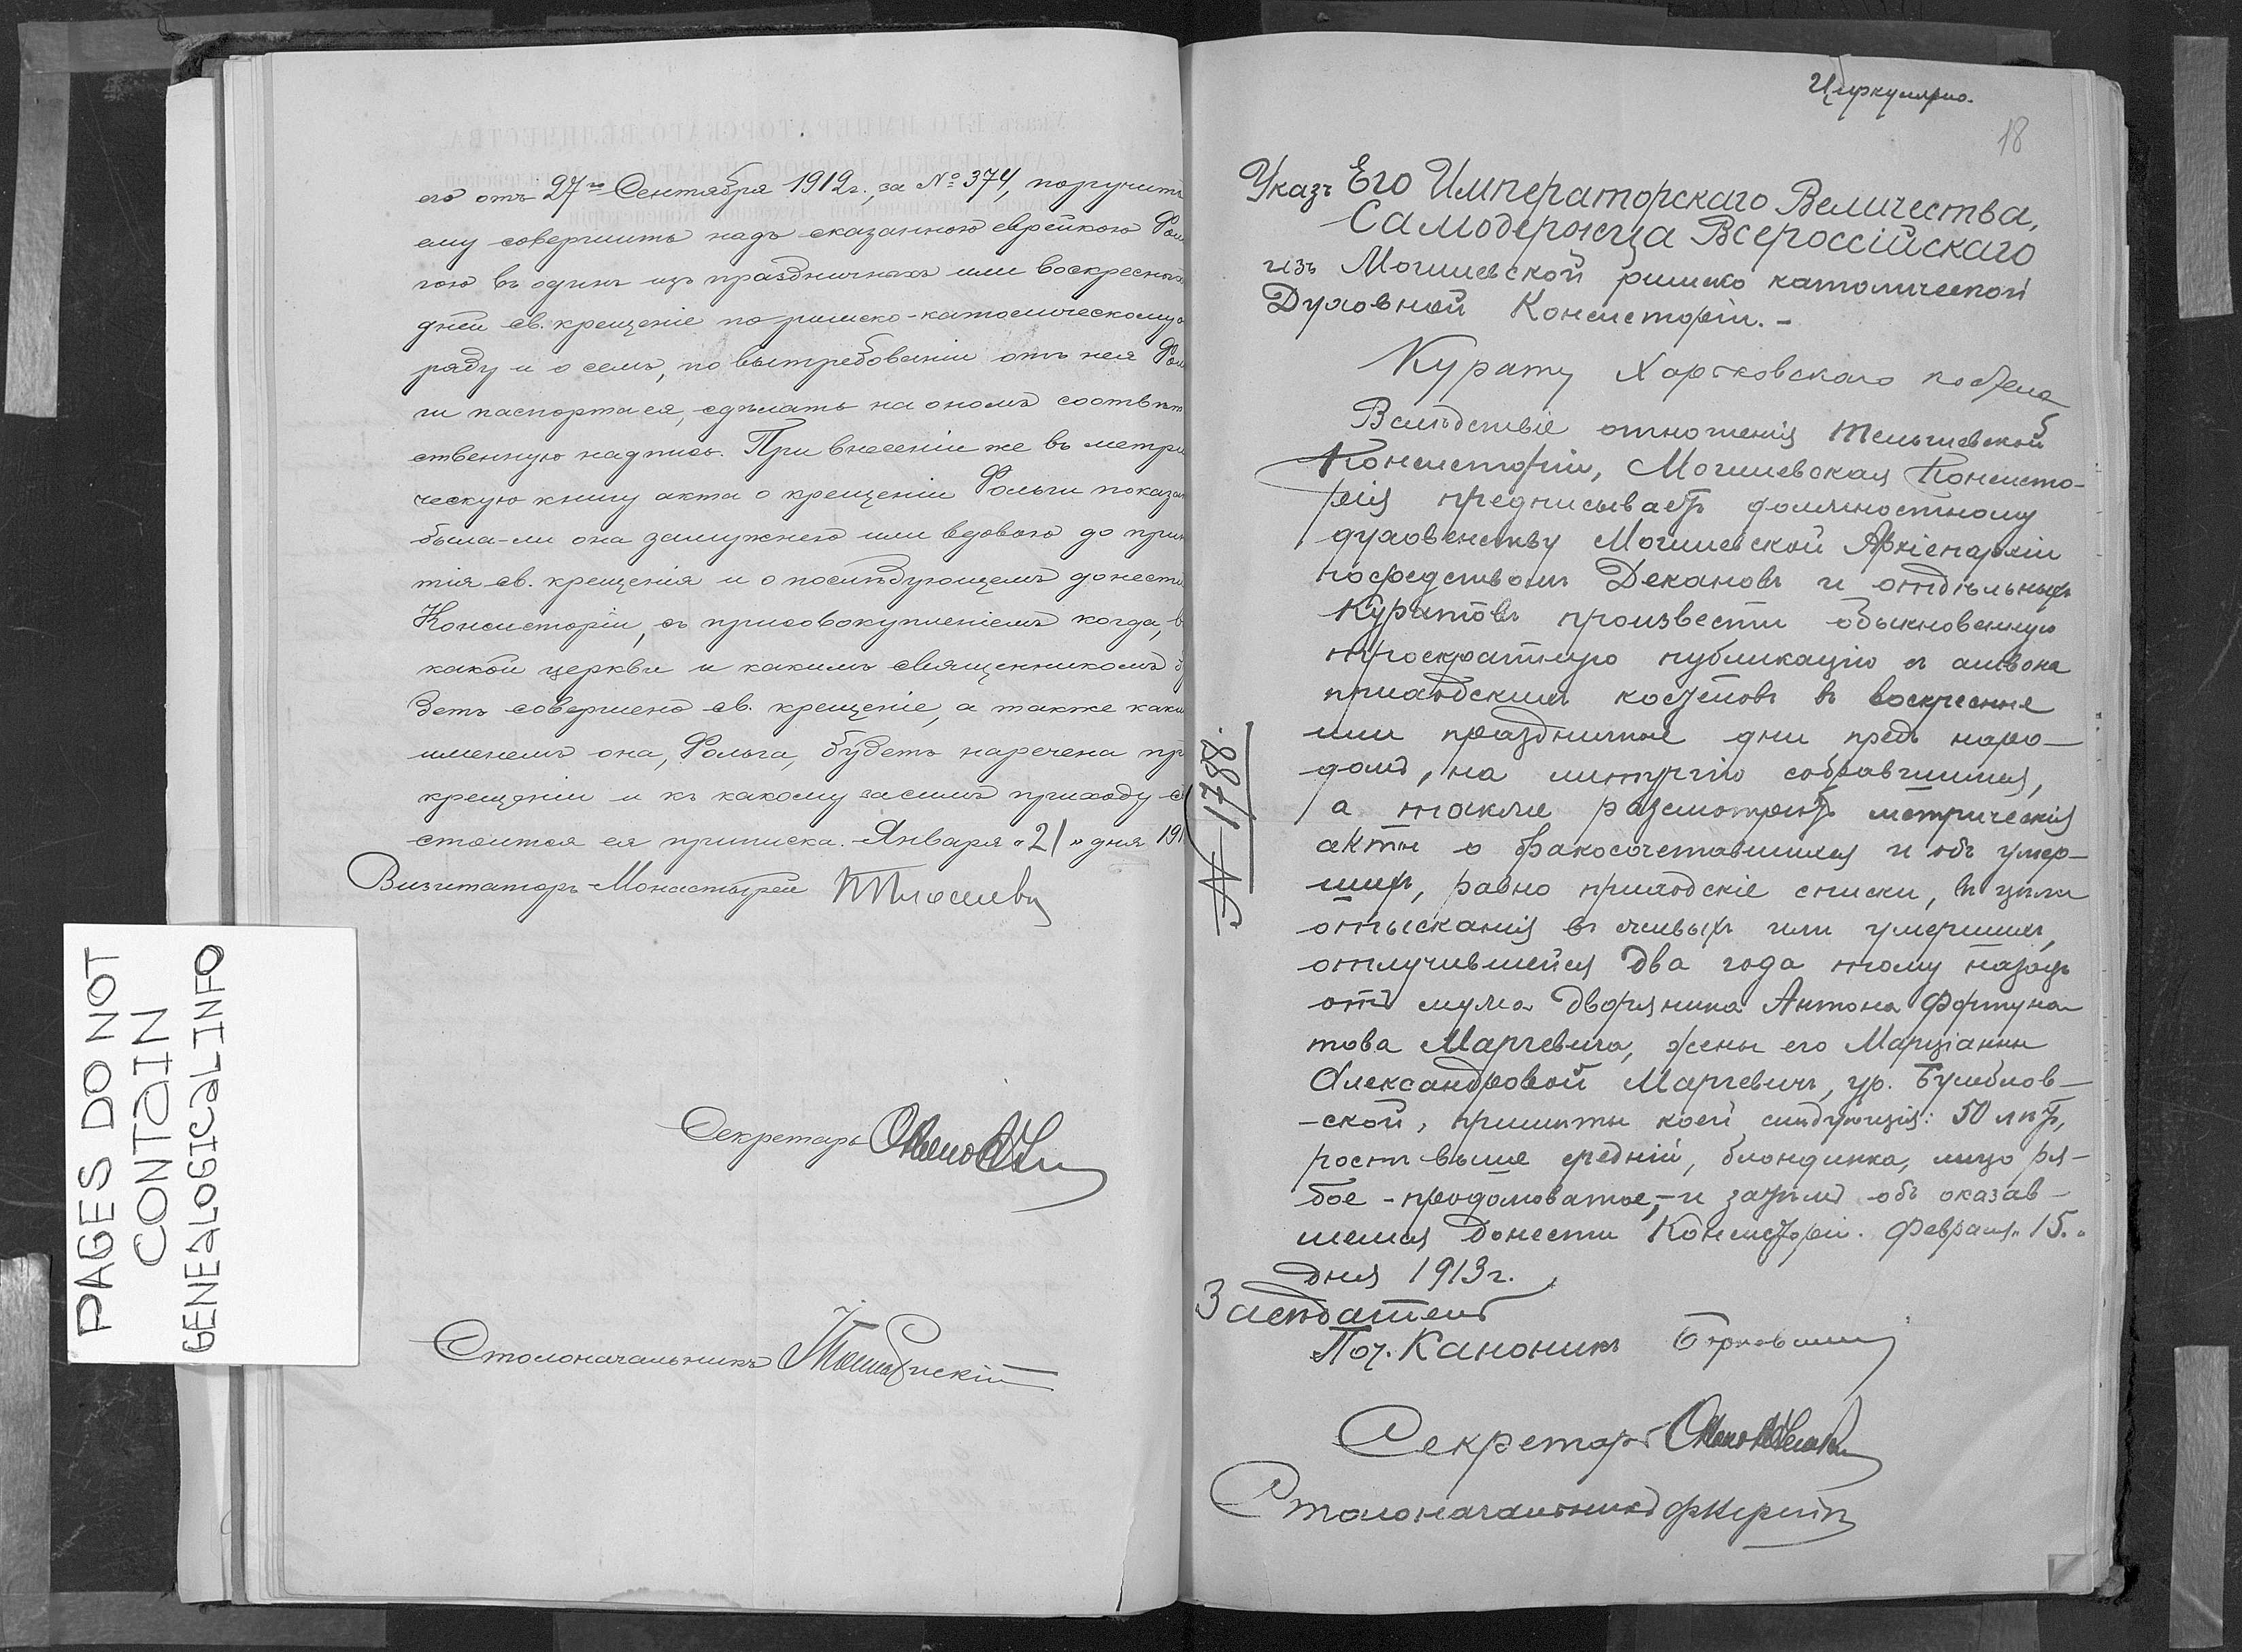 его отъ 27го Сентября 1912г., за № 374, поручить
ему совершить надъ сказанною еврейкою Фоль
гою въ одинъ изъ праздничныхъ или воскресныхъ
дней св. крещеніе по римско-католическому о
ряду и о семъ, по вытребованіи отъ нея Фоль
ги паспорта ея, сдѣлать на ономъ соотвѣт
ственную надпись. При внесеніи же въ метри
ческую книгу акта о крещеніи Фольги показа
была-ли она замужнею или вдовою до приня
тія св. крещенія и о послѣдующемъ донести
Консисторіи, съ присовокупленіемъ когда, въ
какой церкви и какимъ священникомъ бу
детъ совершено св. крещеніе, а также каким
именемъ она, Фольга, будетъ наречена пр
крещеніи и къ какому засимъ приходу со
стоится ея приписка. Января "21" дня 191
Визитаторъ Монастырей
Секретарь
Столоначальникъ
PAGES DO NOT
CONTAIN
GENEALOGICAL INFO
Циркулярно.
18
Указъ Его Императорскаго Величества,
Самодержца Всероссійскаго
изъ Могилевской римско католической
Духовной Консисторіи.-
Курату Харьковскаго костела
Вслѣдствіе отношенія Тельшевской
Консисторіи, Могилевская Консисто-
рія предписываетъ должностному
духовенству Могилевской Архіепархіи
посредствомъ Декановъ и отдѣльныхъ
Куратовъ произвести обыкновенную
троекратную публикацію съ амвона
приходскихъ костеловъ въ воскресные
или праздничные дни предъ наро-
домъ, на литургію собравшимся,
а также разсмотрѣть метрическія
акты о бракосочетавшихся и объ умер-
шихъ, равно приходскіе списки, въ цѣли
отысканія въ живыхъ или умершихъ,
отлучившейся два года тому назадъ
отъ мужа дворянина Антона Фортуна
това Марцевича, жены его Марціанны
Александровой Марцевичъ, ур.
-ской, примѣты коей слѣдующія: 50 лѣтъ,
ростъ выше средній, блондинка, лицо ря-
бое - продолговатое,- и затѣмъ объ оказав-
шемся донести Консисторіи. Февраля "15"
дня 1913г.
№ 1788.
Засѣдатель
Поч. Каноникъ
Секретарь
Столоначальникъ